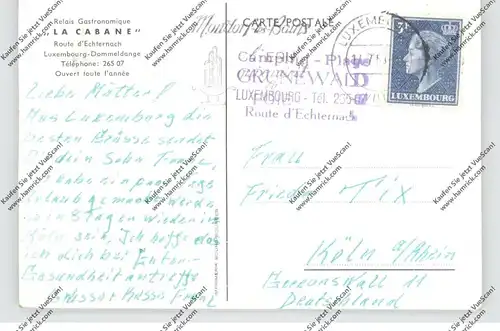 Relais Gastronomique
"LA CABANE"
Route d'Echternach
Luxembourg-Dommeldange
Téléphone: 265 07
Ouvert toute l'année
CARTE POSTALE
LUXEMBOURG
Mondorf-les-Bains
Camping - Plage
GRUNEWALD
LUXEMBOURG - Tél.
Route d'Echternach
3F
LUXEMBOURG
Liebe Mutter!
Aus Luxemburg die
besten Grüsse sendet
dir dein Sohn Franz,
habe ein paar Tage
Urlaub gemacht werde
in Tagen wieder in
Köln sein. Ich hoffe das
ich dich bei
Gesundheit antreffe
Franz
Frau
Tix
Köln a/Rhein
11
Deutschland
Kaufen Sie jetzt auf / Buy now at
www.hamrick.com